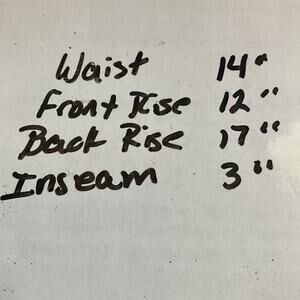 Waist 14"
Front Rise 12"
Back Rise 17"
Inseam 3"